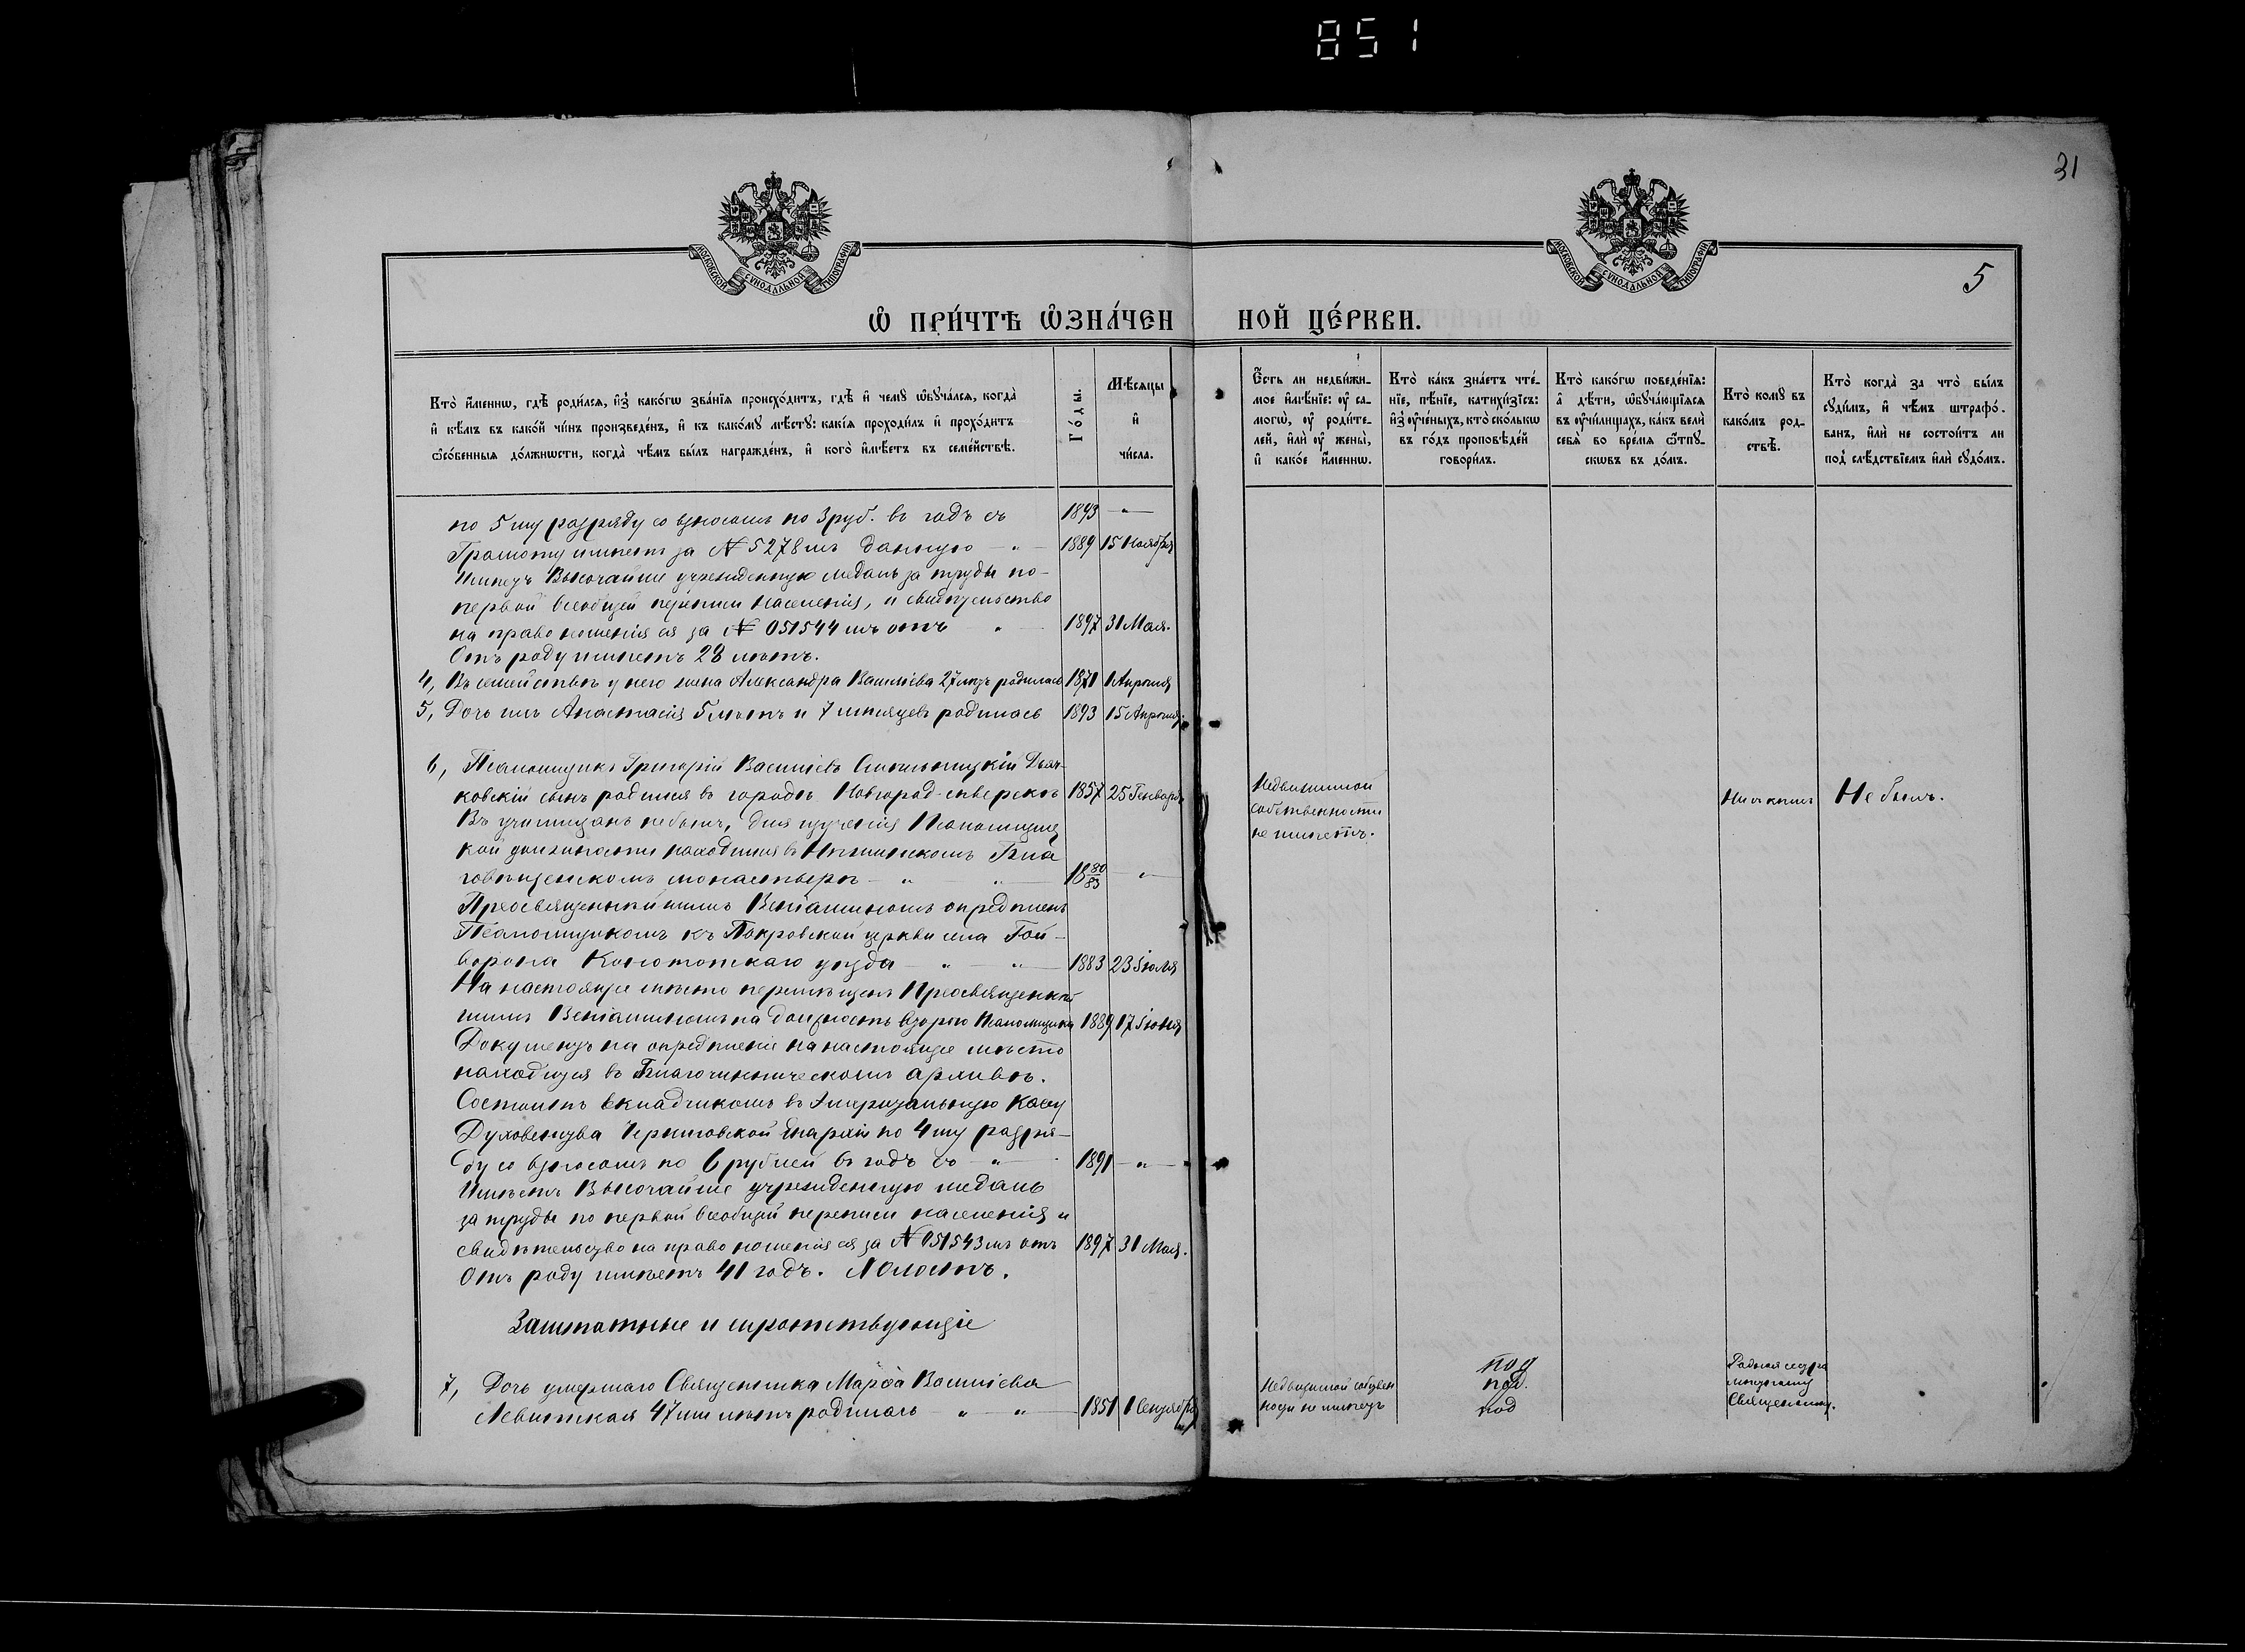 851
31
5
МОСКОВСКОЙ СѴНОДАЛЬНОЙ ТИПОГРАФІИ
МОСКОВСКОЙ СѴНОДАЛЬНОЙ ТИПОГРАФІИ
Ѽ ПРИ́ЧТѢ ѠЗНА́ЧЕН НОЙ ЦЕ́РКВИ.
Кто̀ и҆́меннѡ, гдѣ̀ роди́лся, и҆з̾ како́гѡ зва́нїя происхо́дитъ, гдѣ̀ и҆ чемꙋ̀ ѡ҆бꙋча́лся, когда̀
и҆ кѣ́мъ въ како́й чи́нъ произведе́нъ, и҆ къ како́мꙋ мѣ́стꙋ: какі́я проходи́лъ и҆ прохо́дитъ
ѻ҆со́бенныя до́лжнѡсти, когда̀ чѣ́мъ бы́лъ награжде́нъ, и҆ кого̀ и҆мѣ́етъ въ семе́йствѣ.
Го́ды.
Мѣ́сяцы
и҆
чи́сла.
Є҆́сть ли недви́жи-
мое и҆мѣ́нїе: ᲂу҆ са-
могѡ̀, ᲂу҆ роди́те-
лей, и҆лѝ ᲂу҆ жены̀,
и҆ како́е и҆́меннѡ.
Кто̀ ка́къ зна́етъ чте́-
нїе, пѣ́нїе, катихи́зїсъ:
и҆з̾ ᲂу҆че́ныхъ, кто̀ ско́лькѡ
въ го́дъ проповѣ́дей
говори́лъ.
Кто̀ како́гѡ поведе́нїя:
а҆ дѣ́ти, ѡ҆бꙋча́ющїяся
въ ᲂу҆чи́лищахъ, ка́къ велѝ
себя̀ во вре́мя ѿпꙋ-
скѡвъ въ до́мъ.
Кто̀ комꙋ̀ въ
како́мъ род-
ствѣ̀.
Кто̀ когда̀ за что̀ бы́лъ
сꙋди́мъ, и҆ чѣ́мъ штрафо́-
ванъ, и҆лѝ не состои́тъ ли
под̾ слѣ́дствїемъ и҆лѝ сꙋдо́мъ.
по 5му разряду со взносомъ по 3 руб. въ годъ съ 1893 — " —
Грамоту имѣетъ за № 5278мъ данную — " — 1889 15 Ноября
Имѣетъ Высочайше учрежденную медаль за труды по-
первой всеобщей переписи населенія, и свидѣтельство
на право ношенія ея за № 051544мъ отъ " — 1897 31 Мая.
Отъ роду имѣетъ 28 лѣтъ.
4, Въ семействѣ у него жена Александра Василіева 27 лѣтъ родилась 1871 1 Апрѣля
5, Дочь ихъ Анастасія 5 лѣтъ и 7 мѣсяцевъ родилась 1893 15 Апрѣля.
6, Псаломщикъ Григорій Василіевъ Дьяч-
ковскій сынъ родился въ городѣ Новгород-сѣверскѣ 1857 25 Генваря
Въ училищахъ не былъ, для изученія Псаломщиц
кой должности находился въ Нѣжинскомъ Бла
говѣщенскомъ монастырѣ — " — " — 18 80/83 — " —
Преосвященнѣйшимъ Веніаминомъ опредѣленъ
Псаломщикомъ къ Покровской церкви села Гай-
ворона Конотопскаго уѣзда — " — " — 1883 23 Іюля
На настоящее мѣсто перемѣщенъ Преосвященнѣй
шимъ Веніаминомъ на должность второго Псаломщика 1889 17 Іюня
Документъ на опредѣленіе на настоящее мѣсто
находится въ Благочинническомъ архивѣ.
Состоитъ вкладчикомъ въ Эмеритальную Кассу
Духовенства Черниговской Епархіи по 4му разря-
ду со взносомъ по 6 рублей въ годъ съ — " — 1891 — " —
Имѣетъ Высочайше учрежденную медаль
за труды по первой всеобщей переписи населенія и
свидѣтельство на право ношенія ея за № 051543мъ отъ 1897 31 Мая.
Отъ роду имѣетъ 41 годъ. Холостъ.
Недвижимой
собственности
не имѣетъ.
Ни къ кому
Не былъ.
Заштатные и сиротствующіе
7, Дочь умершаго Священника Марѳа Василіева
Левитская 47ми лѣтъ родилась " — " — 1851 1 Сентября
Недвижимой собствен
ности не имѣетъ
Родная сестра
мѣстному
Священнику.